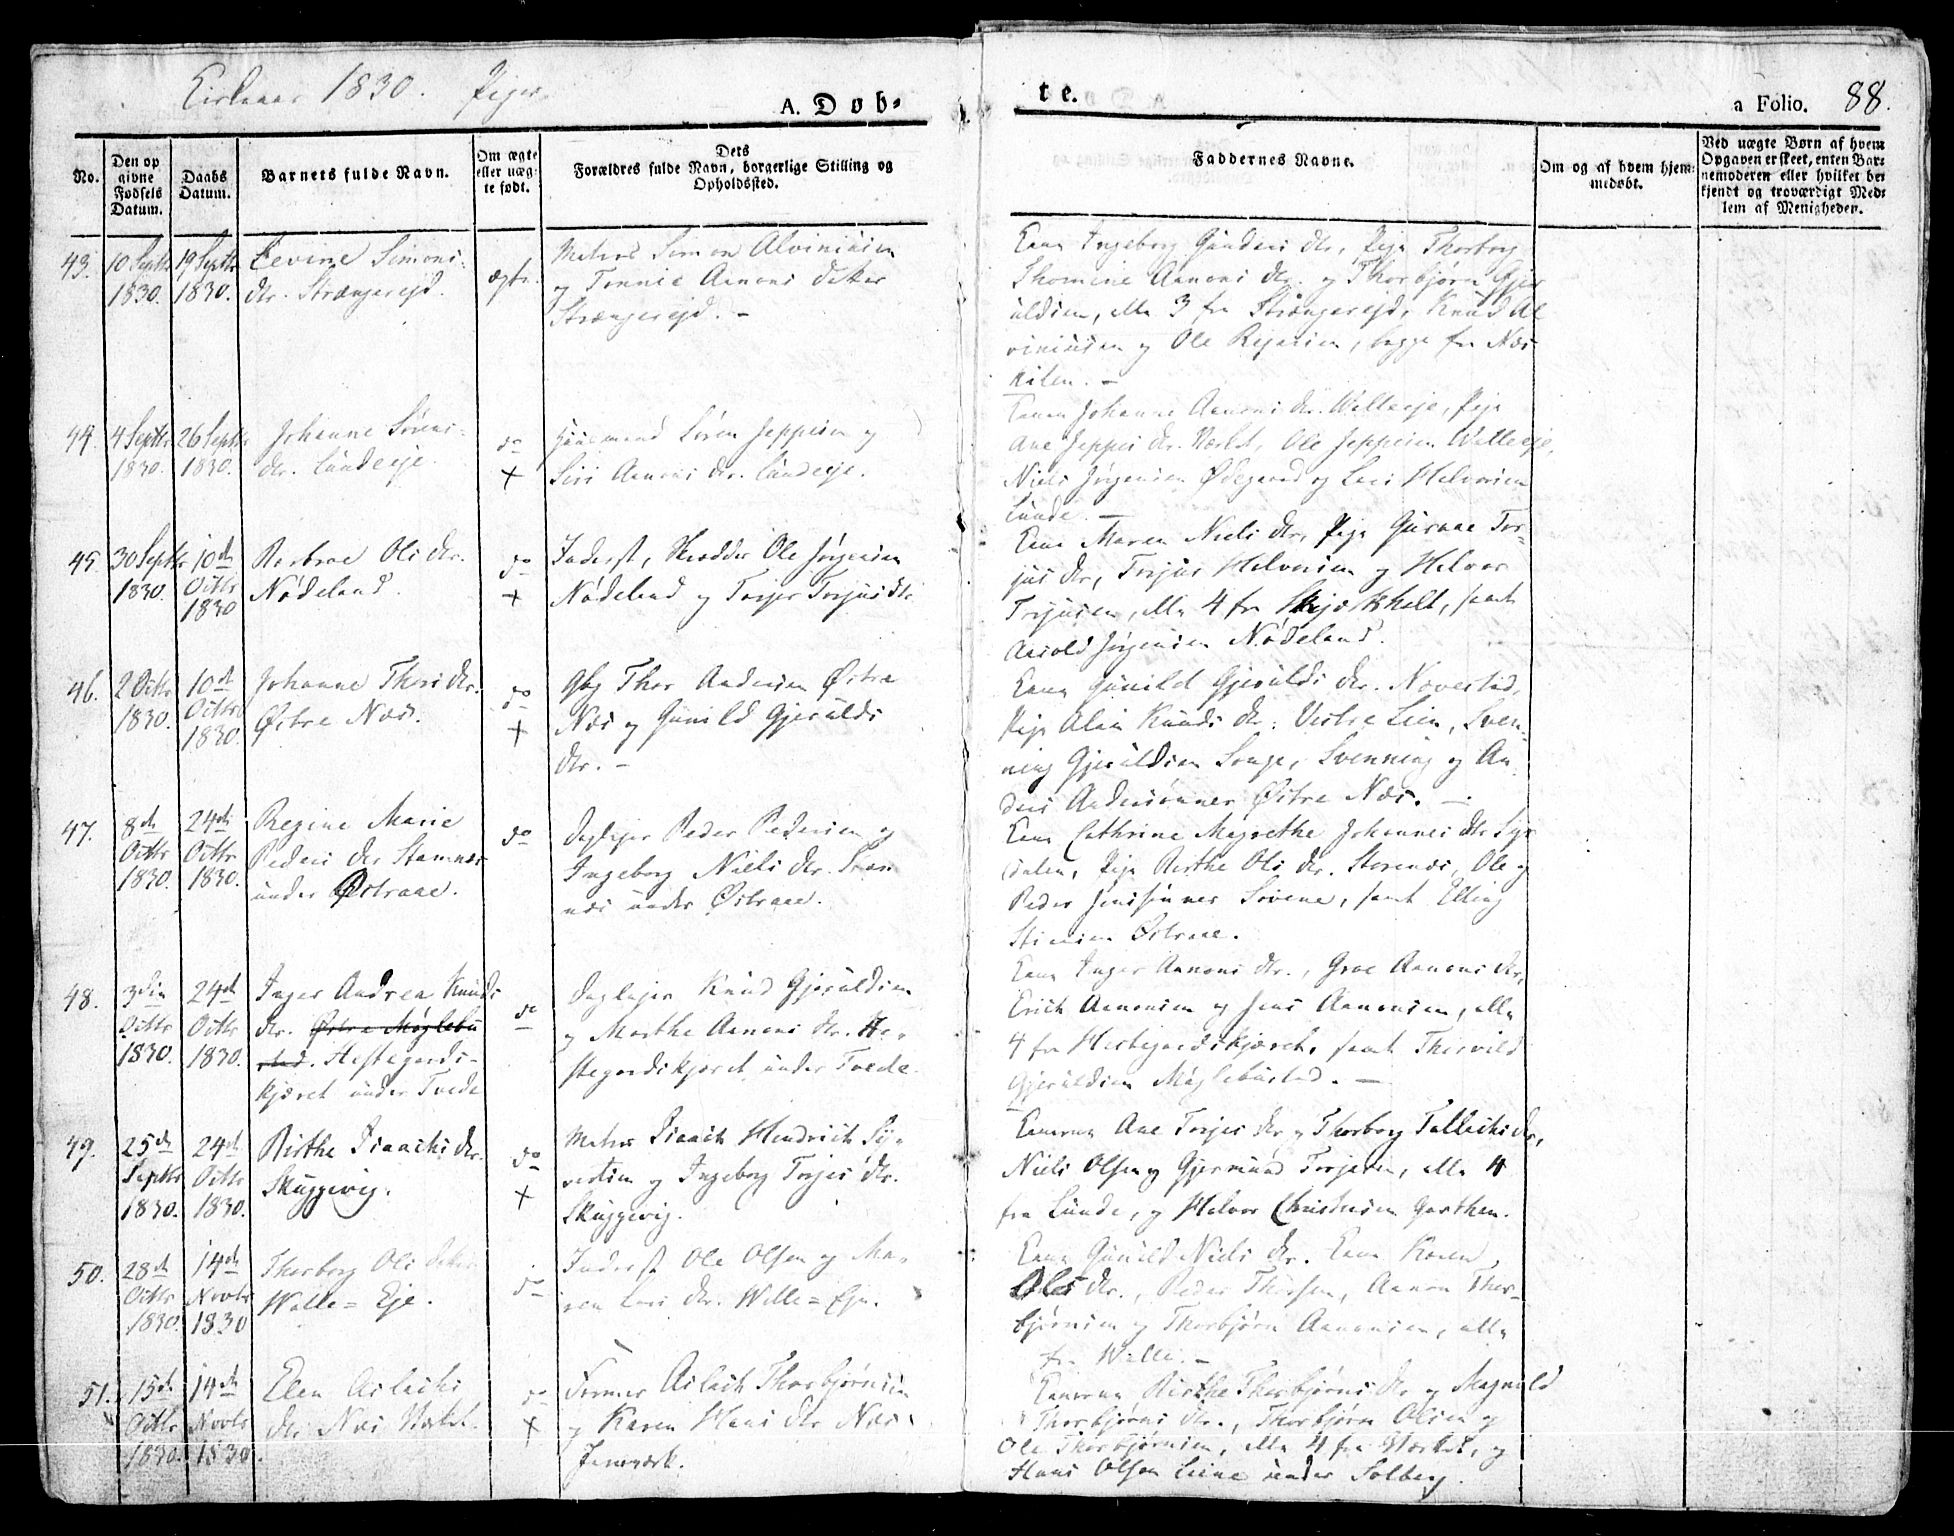 1830. Piger.
A. Døb-
te.
a Folio. 88.
No.
Den op
givne
Fødsels
Datum.
Daabs
Datum.
Barnets fulde Navn.
Om ægte
eller uæg-
te født.
Dets
Forældres fulde Navn, borgerlige Stilling og
Opholdssted.
Faddernes Navne.
Om og af hvem hjem-
medøbt.
Ved uægte Børn af hvem
Opgaven er skeet, enten Bar-
nemoderen eller hvilket be-
kjendt og troværdigt Med-
lem af Menigheden.
43.
10 Septbr
1830.
19 Septbr
1830.
Levine Simons-
dtr. Strængereid.
ægte.
Matros Simon Alvinisen
og Tonnie Aanons datter
Strængereid. -
Kone Ingeborg Gunders dtr, Pige Thorborg
Thomine Aanons dtr. og Thorbjørn Gjer
uldsen, alle 3 fra Strængereid, Knud Al
vinisen og Ole Rejersen, begge fra Næs
kilen. -
44.
4 Septbr
1830.
26 Septbr
1830.
Johanne Sørens-
dtr. Lundeeje.
do
+
Huusmand Søren Jeppesen og
Siri Aanons dtr. Lundeeje.
Kone Johanne Aanons dtr. Walleeje, Pige
Ane Jeppes dtr. Ole Jeppesen Walleeje,
Niels Jørgensen Ødegaard og Lars Halvorsen
Lunde. -
45
30 Septbr
1830.
10de
Octbr
1830
Barbroe Ols dtr.
Nødeland.
do
+
Inderst, Skrædder Ole Jørgensen
Nødeland og Torjer Torjus dtr.
Kone Maren Niels dtr, Pige Gunnae Tor-
jus dtr, Torjus Halvorsen og Halvor
Torjusen, alle 4 fra Skjærkholt, samt
Aasold Jørgensen Nødeland.
46.
2 Octbr
1830.
10de
Octbr
1830.
Johanne Thors dtr.
Østre Næs.
do
+
Gbr Thor Andersen Østre
Næs og Gunild Gjerulds
dtr. -
Kone Gunild Gjerulds dtr. Navestad,
Pige Alis Knuds dtr. Vestre Lien, Sven-
ning Gjeruldsen Songe, Svenning og An
ders Andersønner Østre Næs. -
47.
8de
Octbr
1830.
24de
Octbr
1830.
Regine Marie
Peders dtr Stamnæs
under Østraae.
do
Daglejer Peder Pedersen og
Ingeborg Niels dtr. Stam
næs under Østraae.
Kone Cathrine Magrethe Johannes dtr
dalen, Pige Birthe Ols dtr. Stamnæs, Ole og
Peder Jenssønner Sivene, samt Elling
Østraae.
48.
3die
Octbr
1830.
24de
Octbr
1830.
Inger Andrea Knuds
dtr. Østre Møglebu
stad. Hestegards-
kjæret under Tvede
do
Daglejer Knud Gjeruldsen
og Marthe Aanons dtr. He-
stegardskjæret under Tvede.
Kone Inger Aanons dtr., Groe Aanons dtr,
Erich Aanonsen og Jens Aanonsen, alle
4 fra Hestegardskjæret, samt Thorvild
Gjeruldsen Møglebustad. -
49.
25de
Septbr
1830.
24de
Octbr
1830.
Birthe Isaachs dtr.
Skuggevig.
do
+
Matros Isaach Hendrich Sy-
vertsen og Ingeborg Torjes dtr.
Skuggevig.
Konerne Ane Torjes dtr og Thorborg Tallachs dtr,
Niels Olsen og Gjermund Torjesen, alle 4
fra Lunde, og Halvor Christensen Garthen.
50.
28de
Octbr
1830.
14de
Novbr
1830
Thorborg Ols datter
Walle=Eje.
do
Inderst Ole Olsen og Ma-
ren Lars dtr. Walle=Eje.
Kone Gunild Niels dtr. Kone Karen
Oles dtr., Peder Thorsen, Aanon Thor-
bjørnsen og Thorbjørn Aanonsen, alle
fra Walle. -
51.
15de
Octbr
1830.
14de
Novbr
1830.
Elen Aslachs
dtr. Næs Værket.
do
+
Former Aslach Thorbjørnsen
og Karen Hans dtr Næs
Jernværk.
Konerne Birthe Thorbjørns dtr og Magnild
Thorbjørns dtr., Thorbjørn Olsen og
Ole Thorbjørnsen, alle 4 fra Værket, og
Hans Olsen Liene under Solberg.